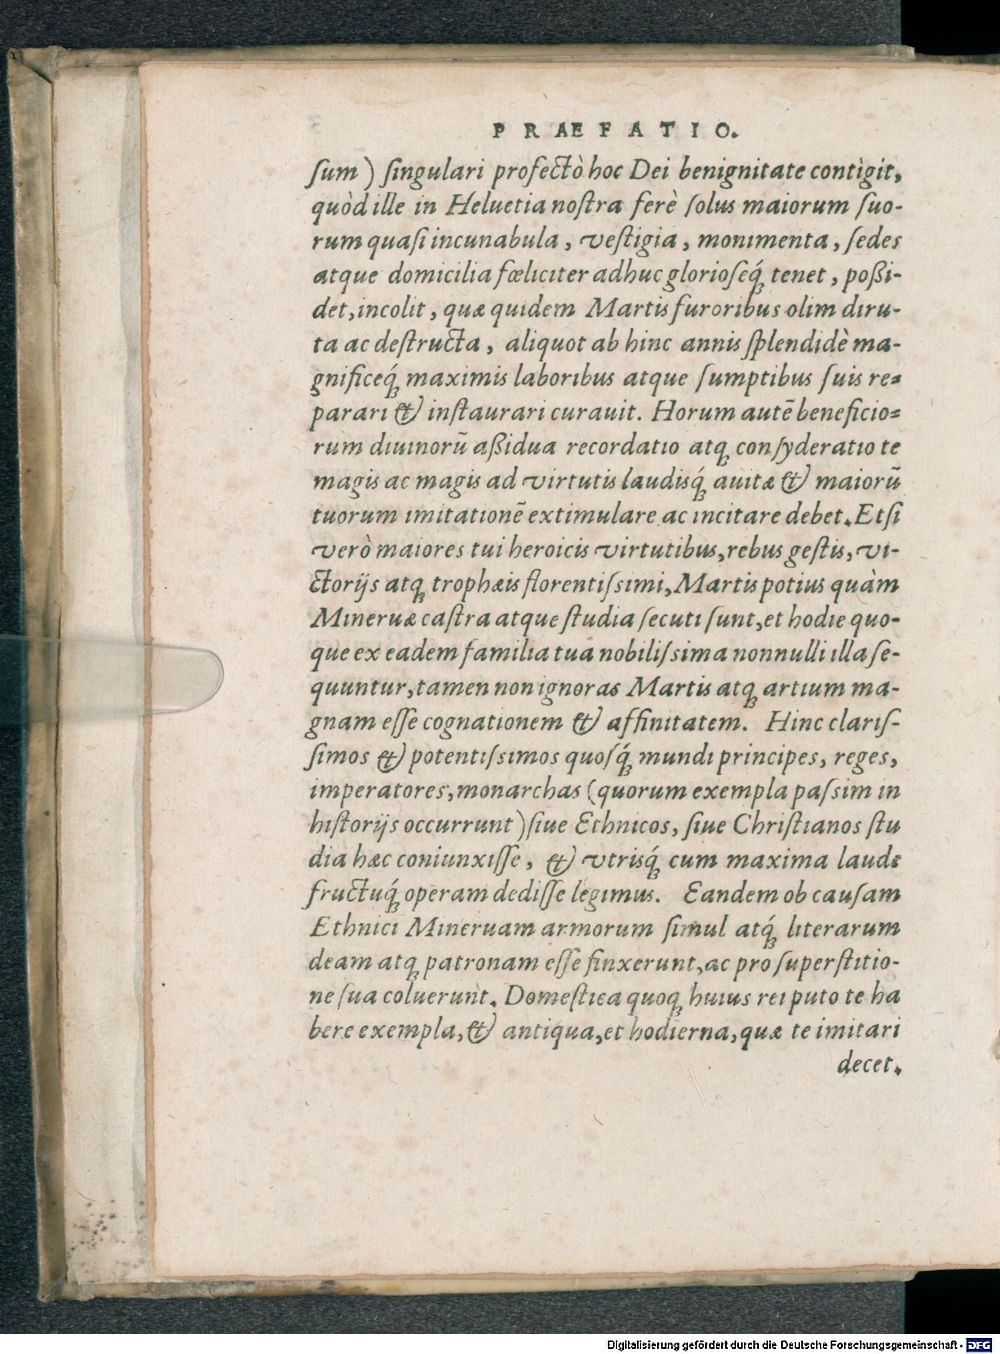 PRAEFATIO.
ſum) ſingulari profectò hoc Dei benignitate contigit,
quòd ille in Heluetia noſtra ferè ſolus maiorum ſuo-
rum quaſi incunabula, veſtigia, monimenta, ſedes
atque domicilia fœliciter adhuc glorioſeq́ꝫ tenet, poßi-
det, incolit, quæ quidem Martis furoribus olim diru-
ta ac deſtructa, aliquot ab hinc annis ſplendidè ma-
gnificeq́ꝫ maximis laboribus atque ſumptibus ſuis re-
parari & inſtaurari curauit. Horum autē beneficio-
rum diuinorū aßidua recordatio atqꝫ conſyderatio te
magis ac magis ad virtutis laudisq́ꝫ auitæ & maiorū
tuorum imitationē extimulare ac incitare debet. Etſi
verò maiores tui heroicis virtutibus, rebus geſtis, vi-
ctorijs atqꝫ trophæis florentiſsimi, Martis potius quàm
Mineruæ caſtra atque ſtudia ſecuti ſunt, et hodie quo-
que ex eadem familia tua nobiliſsima nonnulli illa ſe-
quuntur, tamen non ignoras Martis atqꝫ artium ma-
gnam eſſe cognationem & affinitatem. Hinc clariſ-
ſimos & potentiſsimos quoſq́ꝫ mundi principes, reges,
imperatores, monarchas (quorum exempla paſsim in
hiſtorijs occurrunt) ſiue Ethnicos, ſiue Chriſtianos ſtu
dia hæc coniunxiſſe, & vtrisq́ꝫ cum maxima laude
fructuq́ꝫ operam dediſſe legimus. Eandem ob cauſam
Ethnici Mineruam armorum ſimul atq́ꝫ literarum
deam atqꝫ patronam eſſe finxerunt, ac pro ſuperſtitio-
ne ſua coluerunt. Domeſtica quoqꝫ huius rei puto te ha
bere exempla, & antiqua, et hodierna, quæ te imitari
decet.
Digitalisierung gefördert durch die Deutsche Forschungsgemeinschaft - DFG